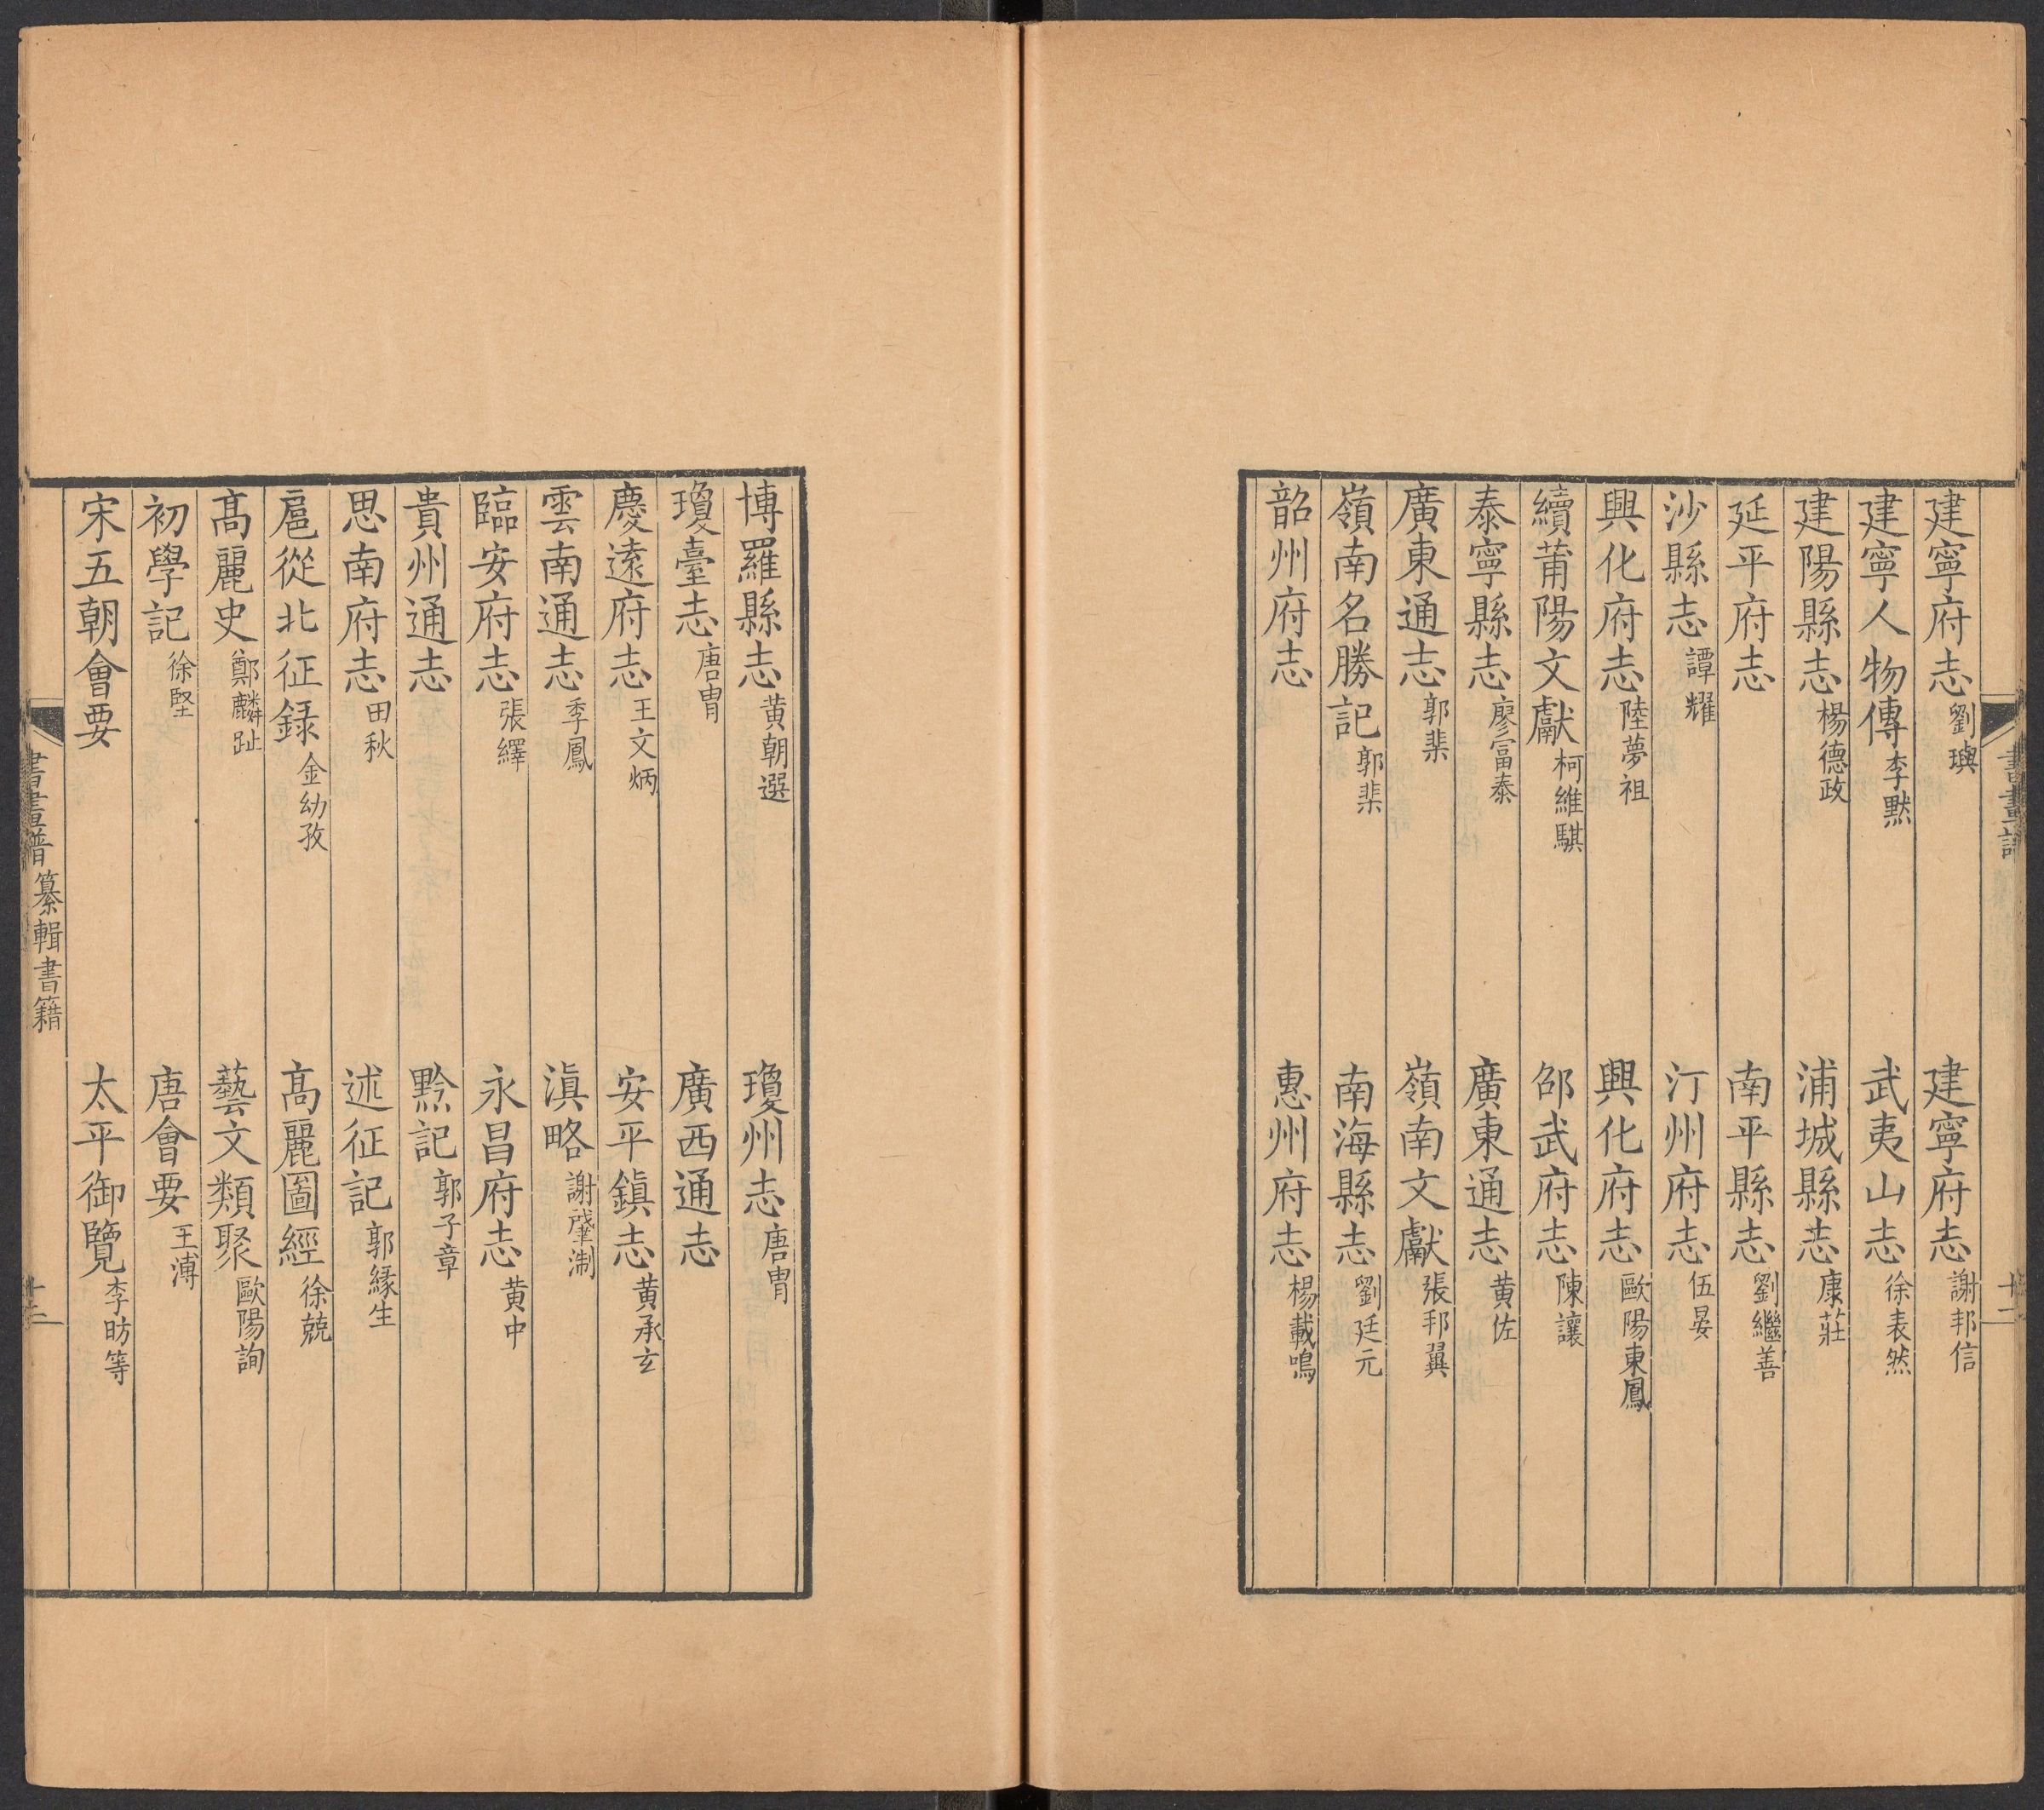 建寧府志 劉璵 建寧府志 謝邦信
建寧人物傳 李默 武夷山志 徐表然
建陽縣志 楊德政 浦城縣志 康莊
延平府志 南平縣志 劉繼善
沙縣志 譚耀 汀州府志 伍晏
興化府志 陸夢祖 興化府志 歐陽東鳳
續莆陽文獻 柯維騏 邵武府志 陳讓
泰寧縣志 廖富泰 廣東通志 黃佐
廣東通志 郭棐 嶺南文獻 張邦翼
嶺南名勝記 郭棐 南海縣志 劉廷元
韶州府志 惠州府志 楊載鳴
博羅縣志 黃朝選 瓊州志 唐冑
瓊臺志 唐冑 廣西通志
慶遠府志 王文炳 安平鎮志 黃承玄
雲南通志 季鳳 滇略 謝肇淛
臨安府志 張繹 永昌府志 黃中
貴州通志 黔記 郭子章
思南府志 田秋 述征記 郭緣生
扈從北征錄 金幼孜 高麗圖經 徐兢
高麗史 鄭麟趾 藝文類聚 歐陽詢
初學記 徐堅 唐會要 王溥
宋五朝會要 太平御覽 李昉等
書畫譜 纂輯書籍 十二